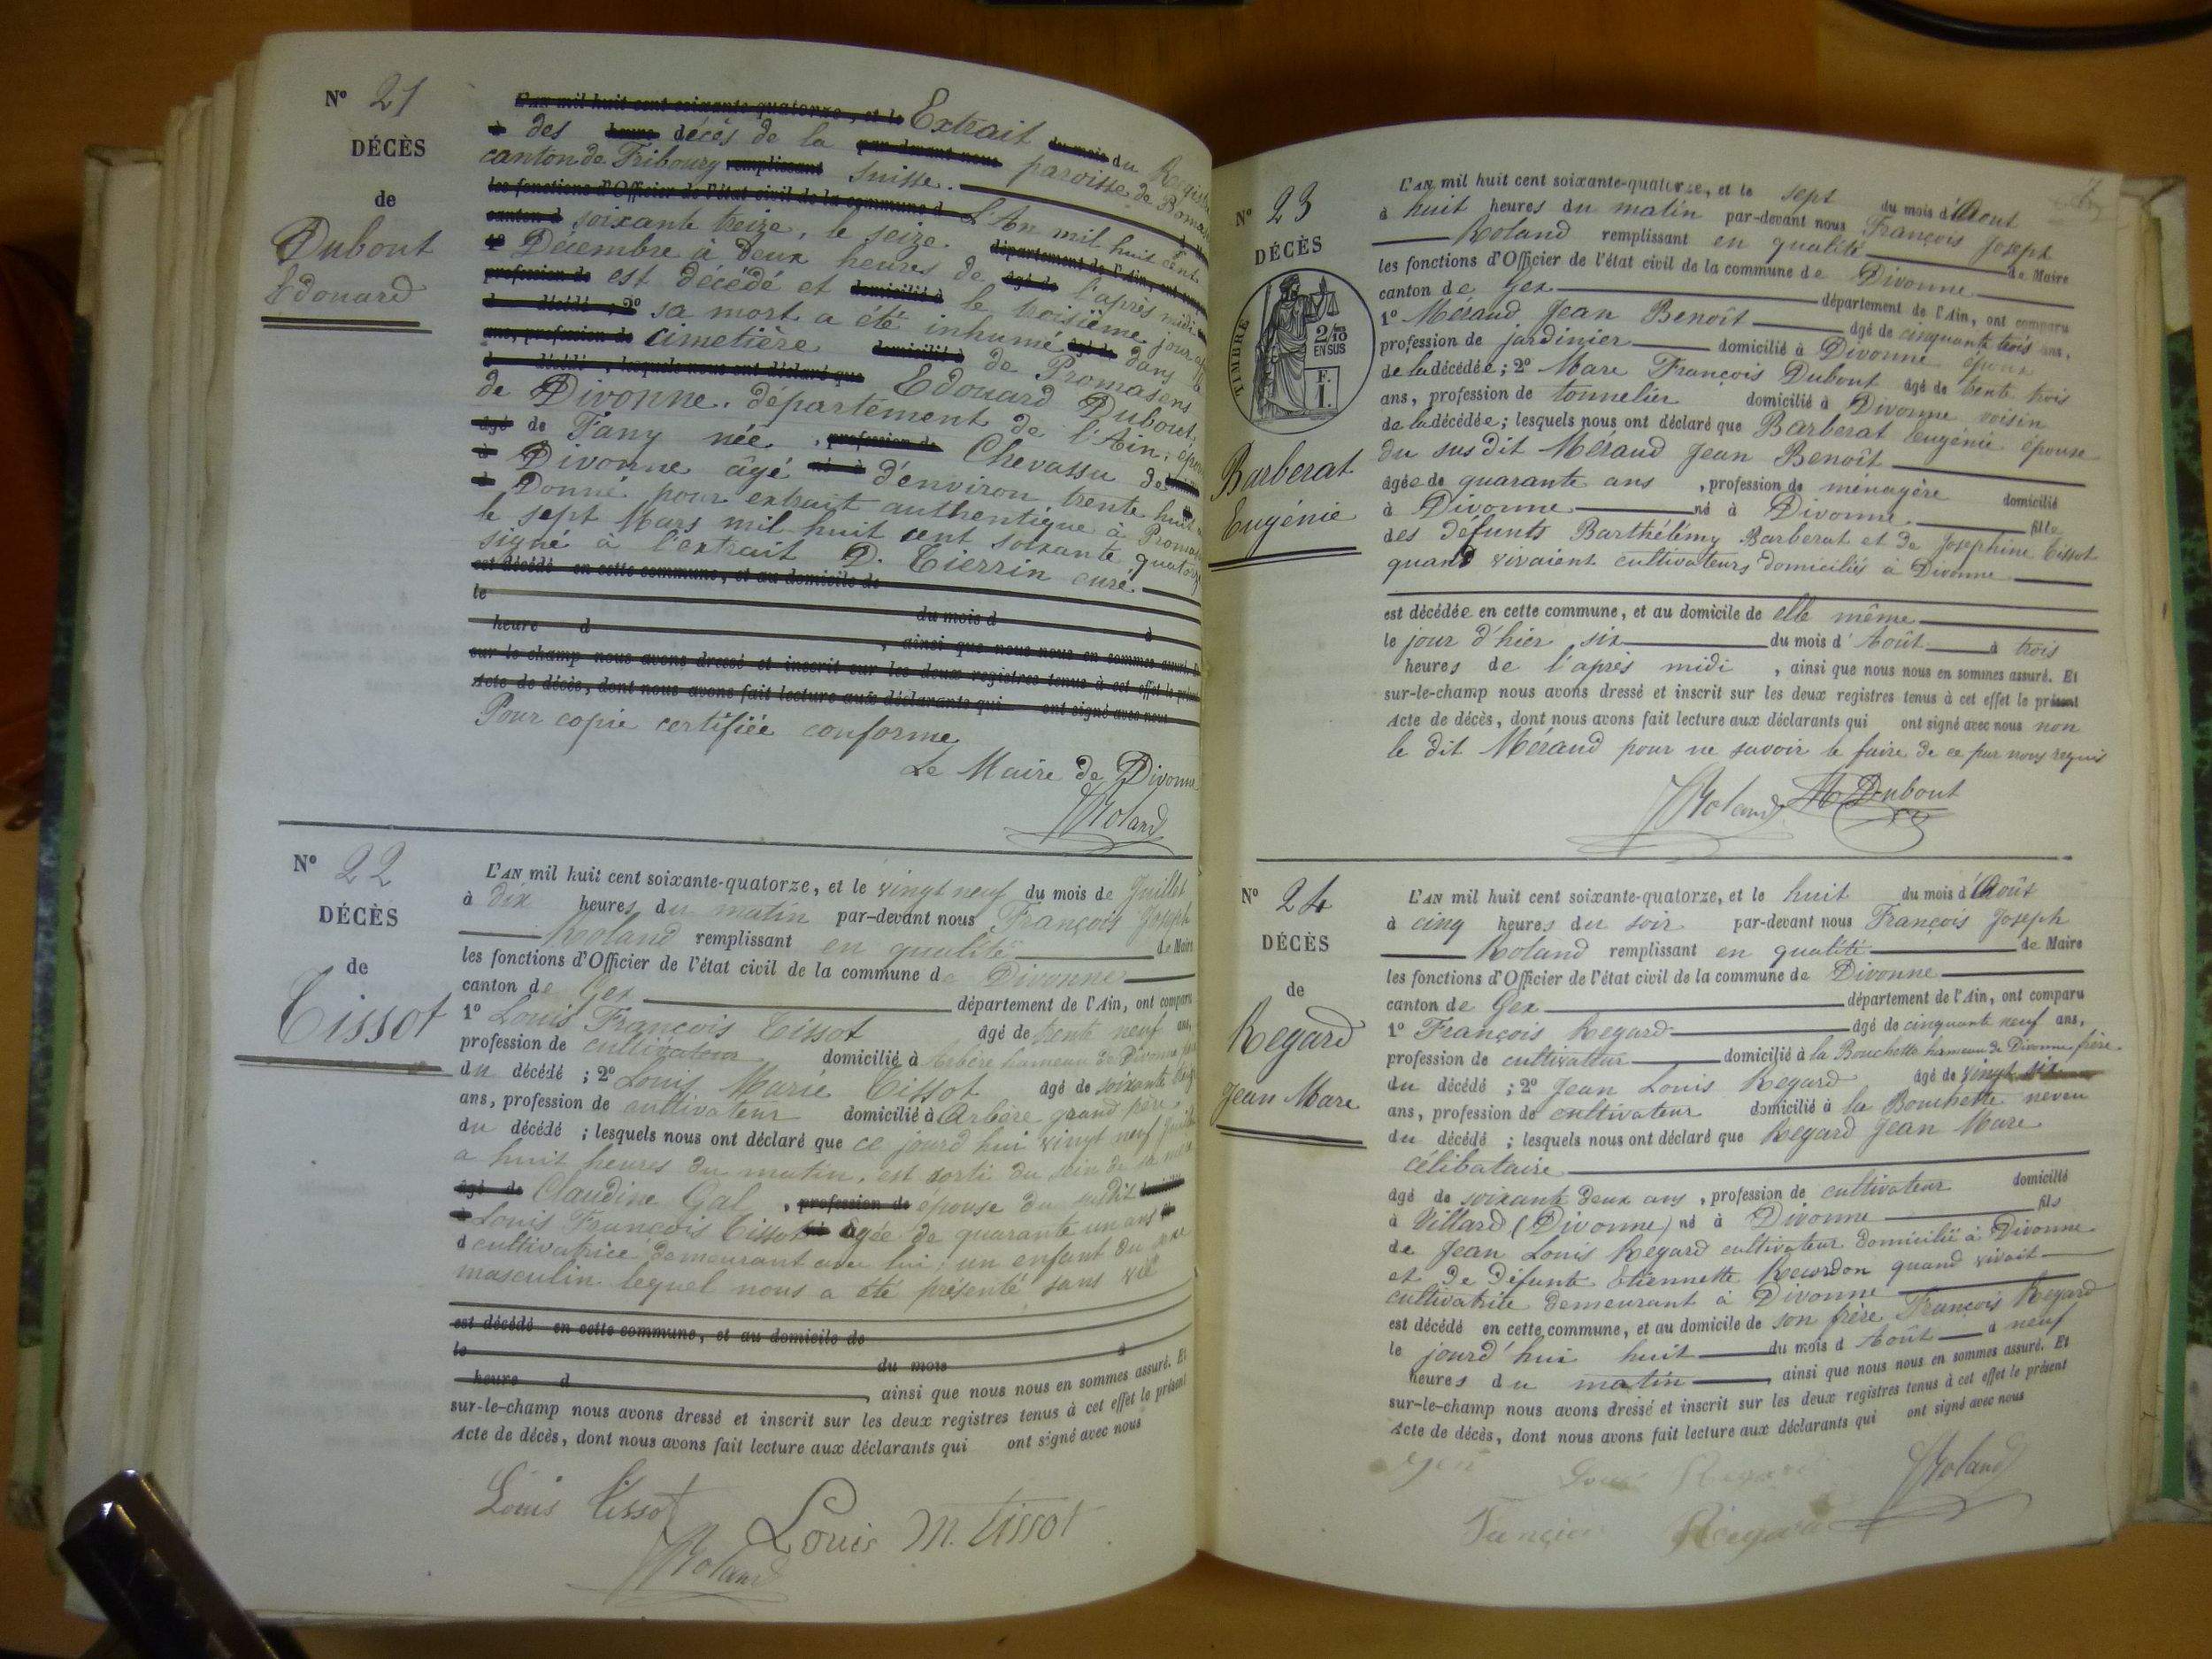 N° 21
DÉCÈS
de
Dubout
Edouard
L'AN mil huit cent soixante-quatorze, et le Extrait du mois du
à des heures décès de la par-devant nous paroisse de
canton de Fribourg remplissant Suisse.
les fonctions d'Officier de l'état civil de la commune d L'An mil huit cent
canton d soixante treize, le seize département de l'Ain, ont
1° Décembre à deux heures de âgé de l'après midi
profession de est décédé et domicilié à le troisième jour
d décédé ; 2° sa mort a été inhumé âgé de dans
ans, profession de cimetière domicilié à de Promasens
d décédé ; lesquels nous ont déclaré que Edouard Dubout,
de Divonne, département de l'Ain,
âgé de de Fany née , profession de Chevassu de
à Divonne âgé né à d'environ trente huit
d Donné pour extrait authentique à
le sept Mars mil huit cent soixante
signé à l'extrait D. Tierrin curé
est décédé en cette commune, et au domicile de
le du mois d à
heure d , ainsi que nous nous en sommes assuré. Et
sur-le-champ nous avons dressé et inscrit sur les deux registres tenus à cet effet le
Acte de décès, dont nous avons fait lecture aux déclarants qui ont signé avec nous
Pour copie certifiée conforme
Le Maire de Divonne
Roland
N° 22
DÉCÈS
de
Tissot
L'AN mil huit cent soixante-quatorze, et le vingt neuf du mois de Juillet
à dix heures du matin par-devant nous François Joseph
Roland remplissant en qualité de Maire
les fonctions d'Officier de l'état civil de la commune de Divonne
canton de Gex département de l'Ain, ont comparu
1° Louis François Tissot âgé de trente neuf ans,
profession de cultivateur domicilié à Arbère hameau de Divonne
du décédé ; 2° Louis Marie Tissot âgé de soixante
ans, profession de cultivateur domicilié à Arbère grand père
du décédé ; lesquels nous ont déclaré que ce jourd'hui vingt neuf Juillet
à huit heures du matin, est sorti du sein de sa mère
âgé de Claudine Gal , profession de épouse du susdit
à Louis François Tissot né âgée de quarante un ans
d cultivatrice demeurant avec lui, un enfant du sexe
masculin lequel nous a été présenté sans vie
est décédé en cette commune, et au domicile de
le du mois à
heure d , ainsi que nous nous en sommes assuré. Et
sur-le-champ nous avons dressé et inscrit sur les deux registres tenus à cet effet le présent
Acte de décès, dont nous avons fait lecture aux déclarants qui ont signé avec nous
Louis Tissot
Louis M. Tissot
Roland
N° 23
DÉCÈS
TIMBRE
2/10
EN SUS
F.
1.
Barberat
Eugénie
L'AN mil huit cent soixante-quatorze, et le sept du mois d'Aout
à huit heures du matin par-devant nous François Joseph
Roland remplissant en qualité de Maire
les fonctions d'Officier de l'état civil de la commune de Divonne
canton de Gex département de l'Ain, ont comparu
1° Méraud Jean Benoît âgé de cinquante trois ans,
profession de jardinier domicilié à Divonne époux
de la décédée ; 2° Marc François Dubout âgé de trente trois
ans, profession de tonnelier domicilié à Divonne voisin
de la décédée ; lesquels nous ont déclaré que Barberat Eugénie épouse
du susdit Méraud Jean Benoît
âgée de quarante ans , profession de ménagère domicilié
à Divonne né à Divonne fille
des défunts Barthélémy Barberat et de Josephine Tissot
quand vivaient cultivateurs domiciliés à Divonne
est décédée en cette commune, et au domicile de elle même
le jour d'hier six du mois d'Août à trois
heures de l'après midi , ainsi que nous nous en sommes assuré. Et
sur-le-champ nous avons dressé et inscrit sur les deux registres tenus à cet effet le présent
Acte de décès, dont nous avons fait lecture aux déclarants qui ont signé avec nous non
le dit Méraud pour ne savoir le faire de ce par nous requis
Roland M Dubout
N° 24
DÉCÈS
de
Regard
Jean Marc
L'AN mil huit cent soixante-quatorze, et le huit du mois d'Août
à cinq heures du soir par-devant nous François Joseph
Roland remplissant en qualité de Maire
les fonctions d'Officier de l'état civil de la commune de Divonne
canton de Gex département de l'Ain, ont comparu
1° François Regard âgé de cinquante neuf ans,
profession de cultivateur domicilié à la Bouchette hameau de Divonne frère
du décédé ; 2° Jean Louis Regard âgé de vingt six
ans, profession de cultivateur domicilié à la Bouchette neveu
du décédé ; lesquels nous ont déclaré que Regard Jean Marc
célibataire
âgé de soixante deux ans , profession de cultivateur domicilié
à Villard (Divonne) né à Divonne fils
de Jean Louis Regard cultivateur domicilié à Divonne
et de défunte Etiennette Recordon quand vivait
cultivatrice demeurant à Divonne
est décédé en cette commune, et au domicile de son frère François Regard
le jourd'hui huit du mois d Août à neuf
heures du matin , ainsi que nous nous en sommes assuré. Et
sur-le-champ nous avons dressé et inscrit sur les deux registres tenus à cet effet le présent
Acte de décès, dont nous avons fait lecture aux déclarants qui ont signé avec nous
Regard Roland
Regard